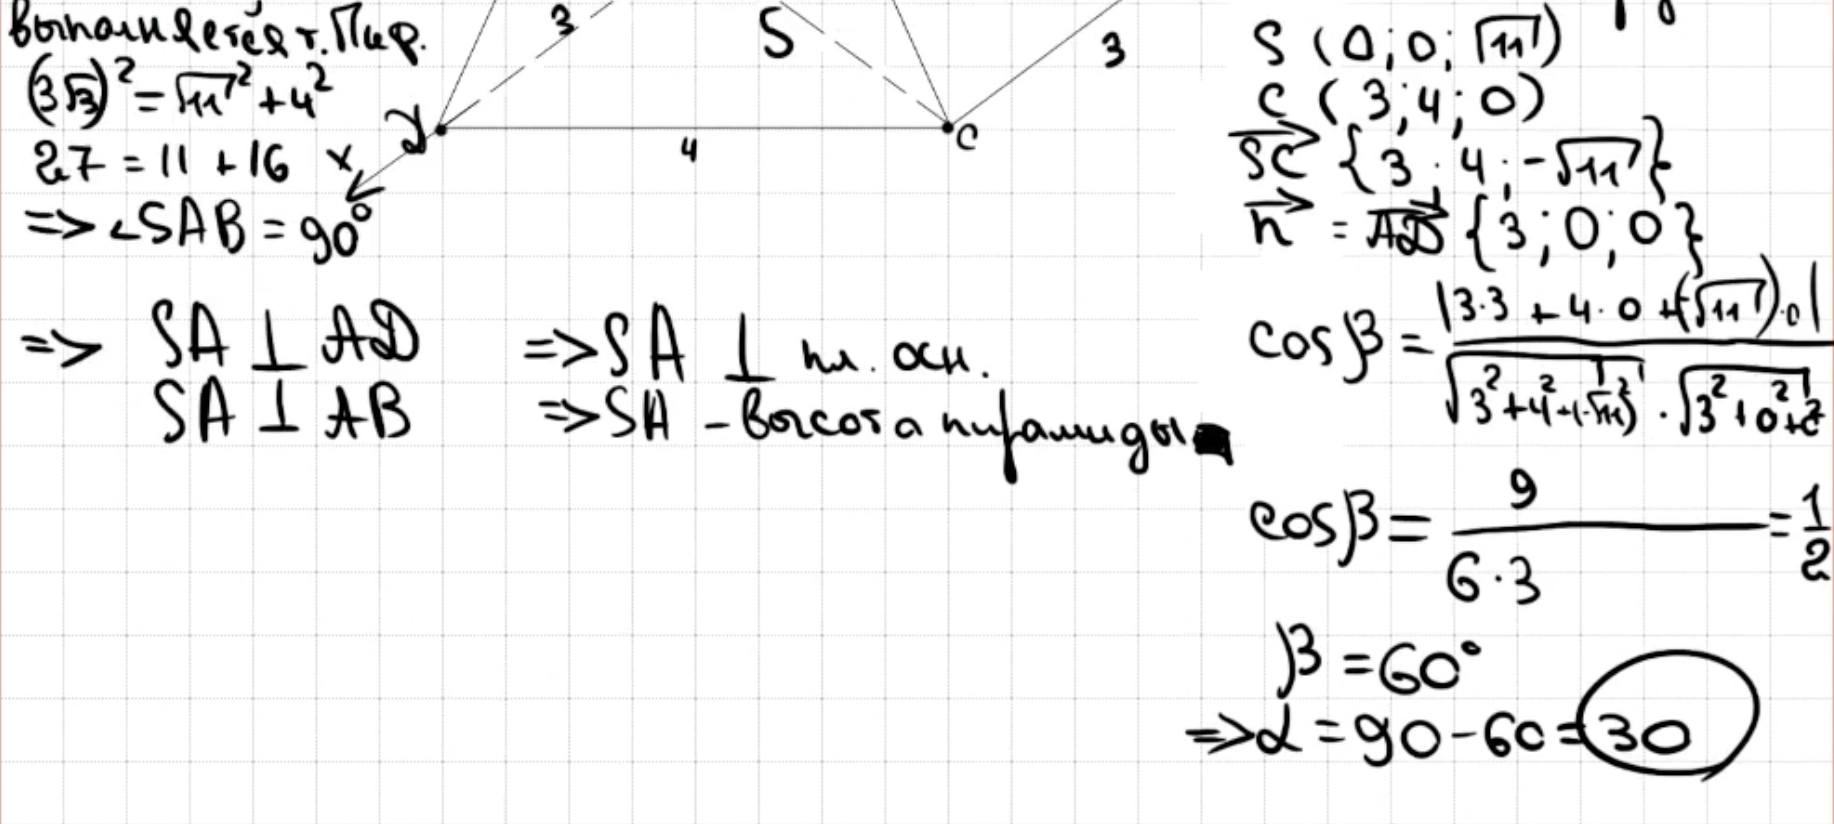 выполняется т. Пиф.
(3√3)² = √11² + 4²
27 = 11 + 16
=> ∠SAB = 90°
=> SA ⊥ AD
SA ⊥ AB
=> SA ⊥ пл. осн.
=> SA – высота пирамиды
3
5
3
D
x
4
C
S (0; 0; √11)
C (3; 4; 0)
SC {3; 4; -√11}
n = AD {3; 0; 0}
cosβ = |3·3 + 4·0 + (-√11)·0| / √3² + 4² + (-√11)² · √3² + 0² + 0²
cosβ = 9 / 6·3 = 1/2
β = 60°
=> α = 90 - 60 = 30